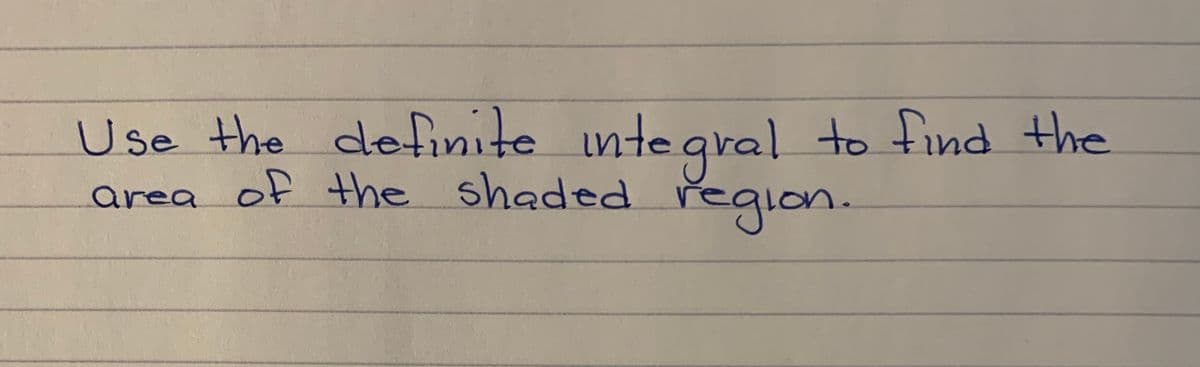 Use the definite integral to find the
area of the shaded region.